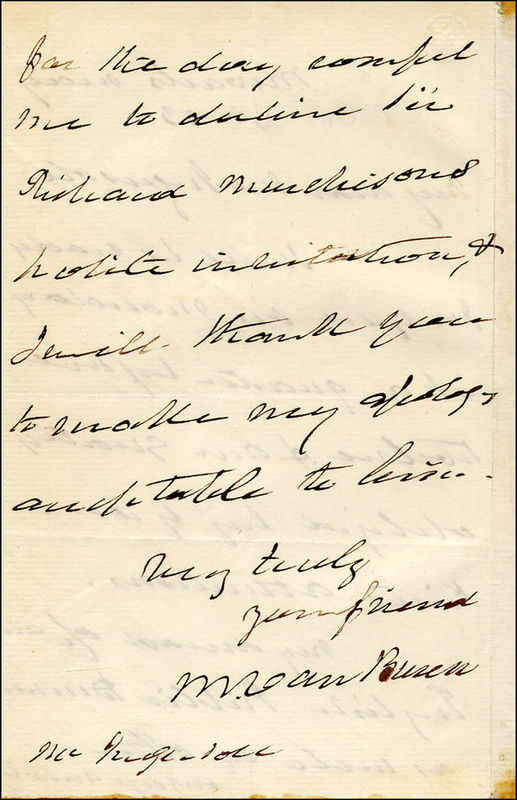 for the day compel
me to decline Sir
Richard Murchisons
polite invitation, &
I will thank you
to make my apology
acceptable to him.
Very truly
your friend
M Van Buren
Mr Ingersoll